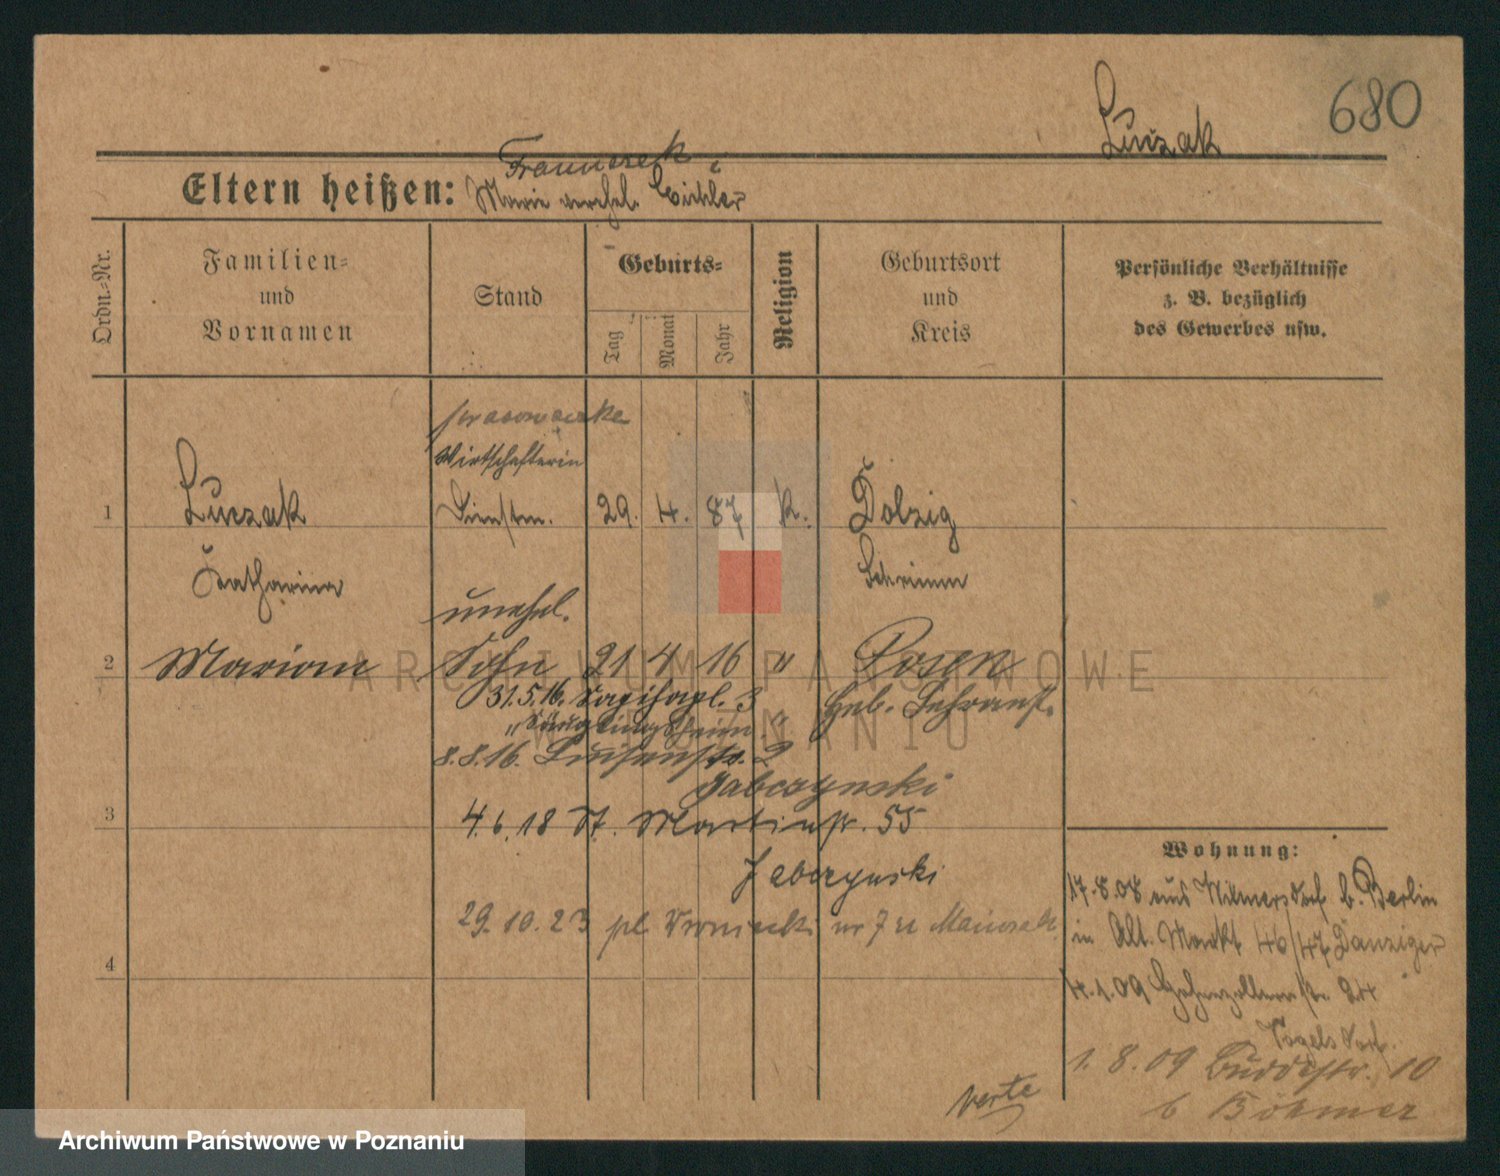 680
Luczak
Franciszek i
Eltern heißen: Marie verehel. Eichler
Ordn.-Nr.
Familien-
und
Vornamen
Stand
Geburts-
Tag
Monat
Jahr
Religion
Geburtsort
und
Kreis
Persönliche Verhältnisse
z. B. bezüglich
des Gewerbes usw.
Wirtschafterin
1 Luczak Dienstm. 29. 4. 87 k. Dolzig
Katharina Schrimm
unehel.
2 Marian Sohn 21 4 16 " Posen
31.5.16. 3 Heb. Lehranst.
"Säuglingsheim"
8.8.16. Luisenstr. 2
Jabczynski
3
4.6.18 St. Martinstr. 55
Jabczynski
29.10.23 pl Wroniecki nr 7
4
Wohnung:
17.8.08 aus Wilmersdorf b. Berlin
in Alt. Markt 46/47 Danziger
4.1.09 Hohenzollernstr. 24
Vogelsdorf.
1.8.09 Buddestr. 10
b Böhmer
verte
ARCHIWUM PAŃSTWOWE
W POZNANIU
Archiwum Państwowe w Poznaniu